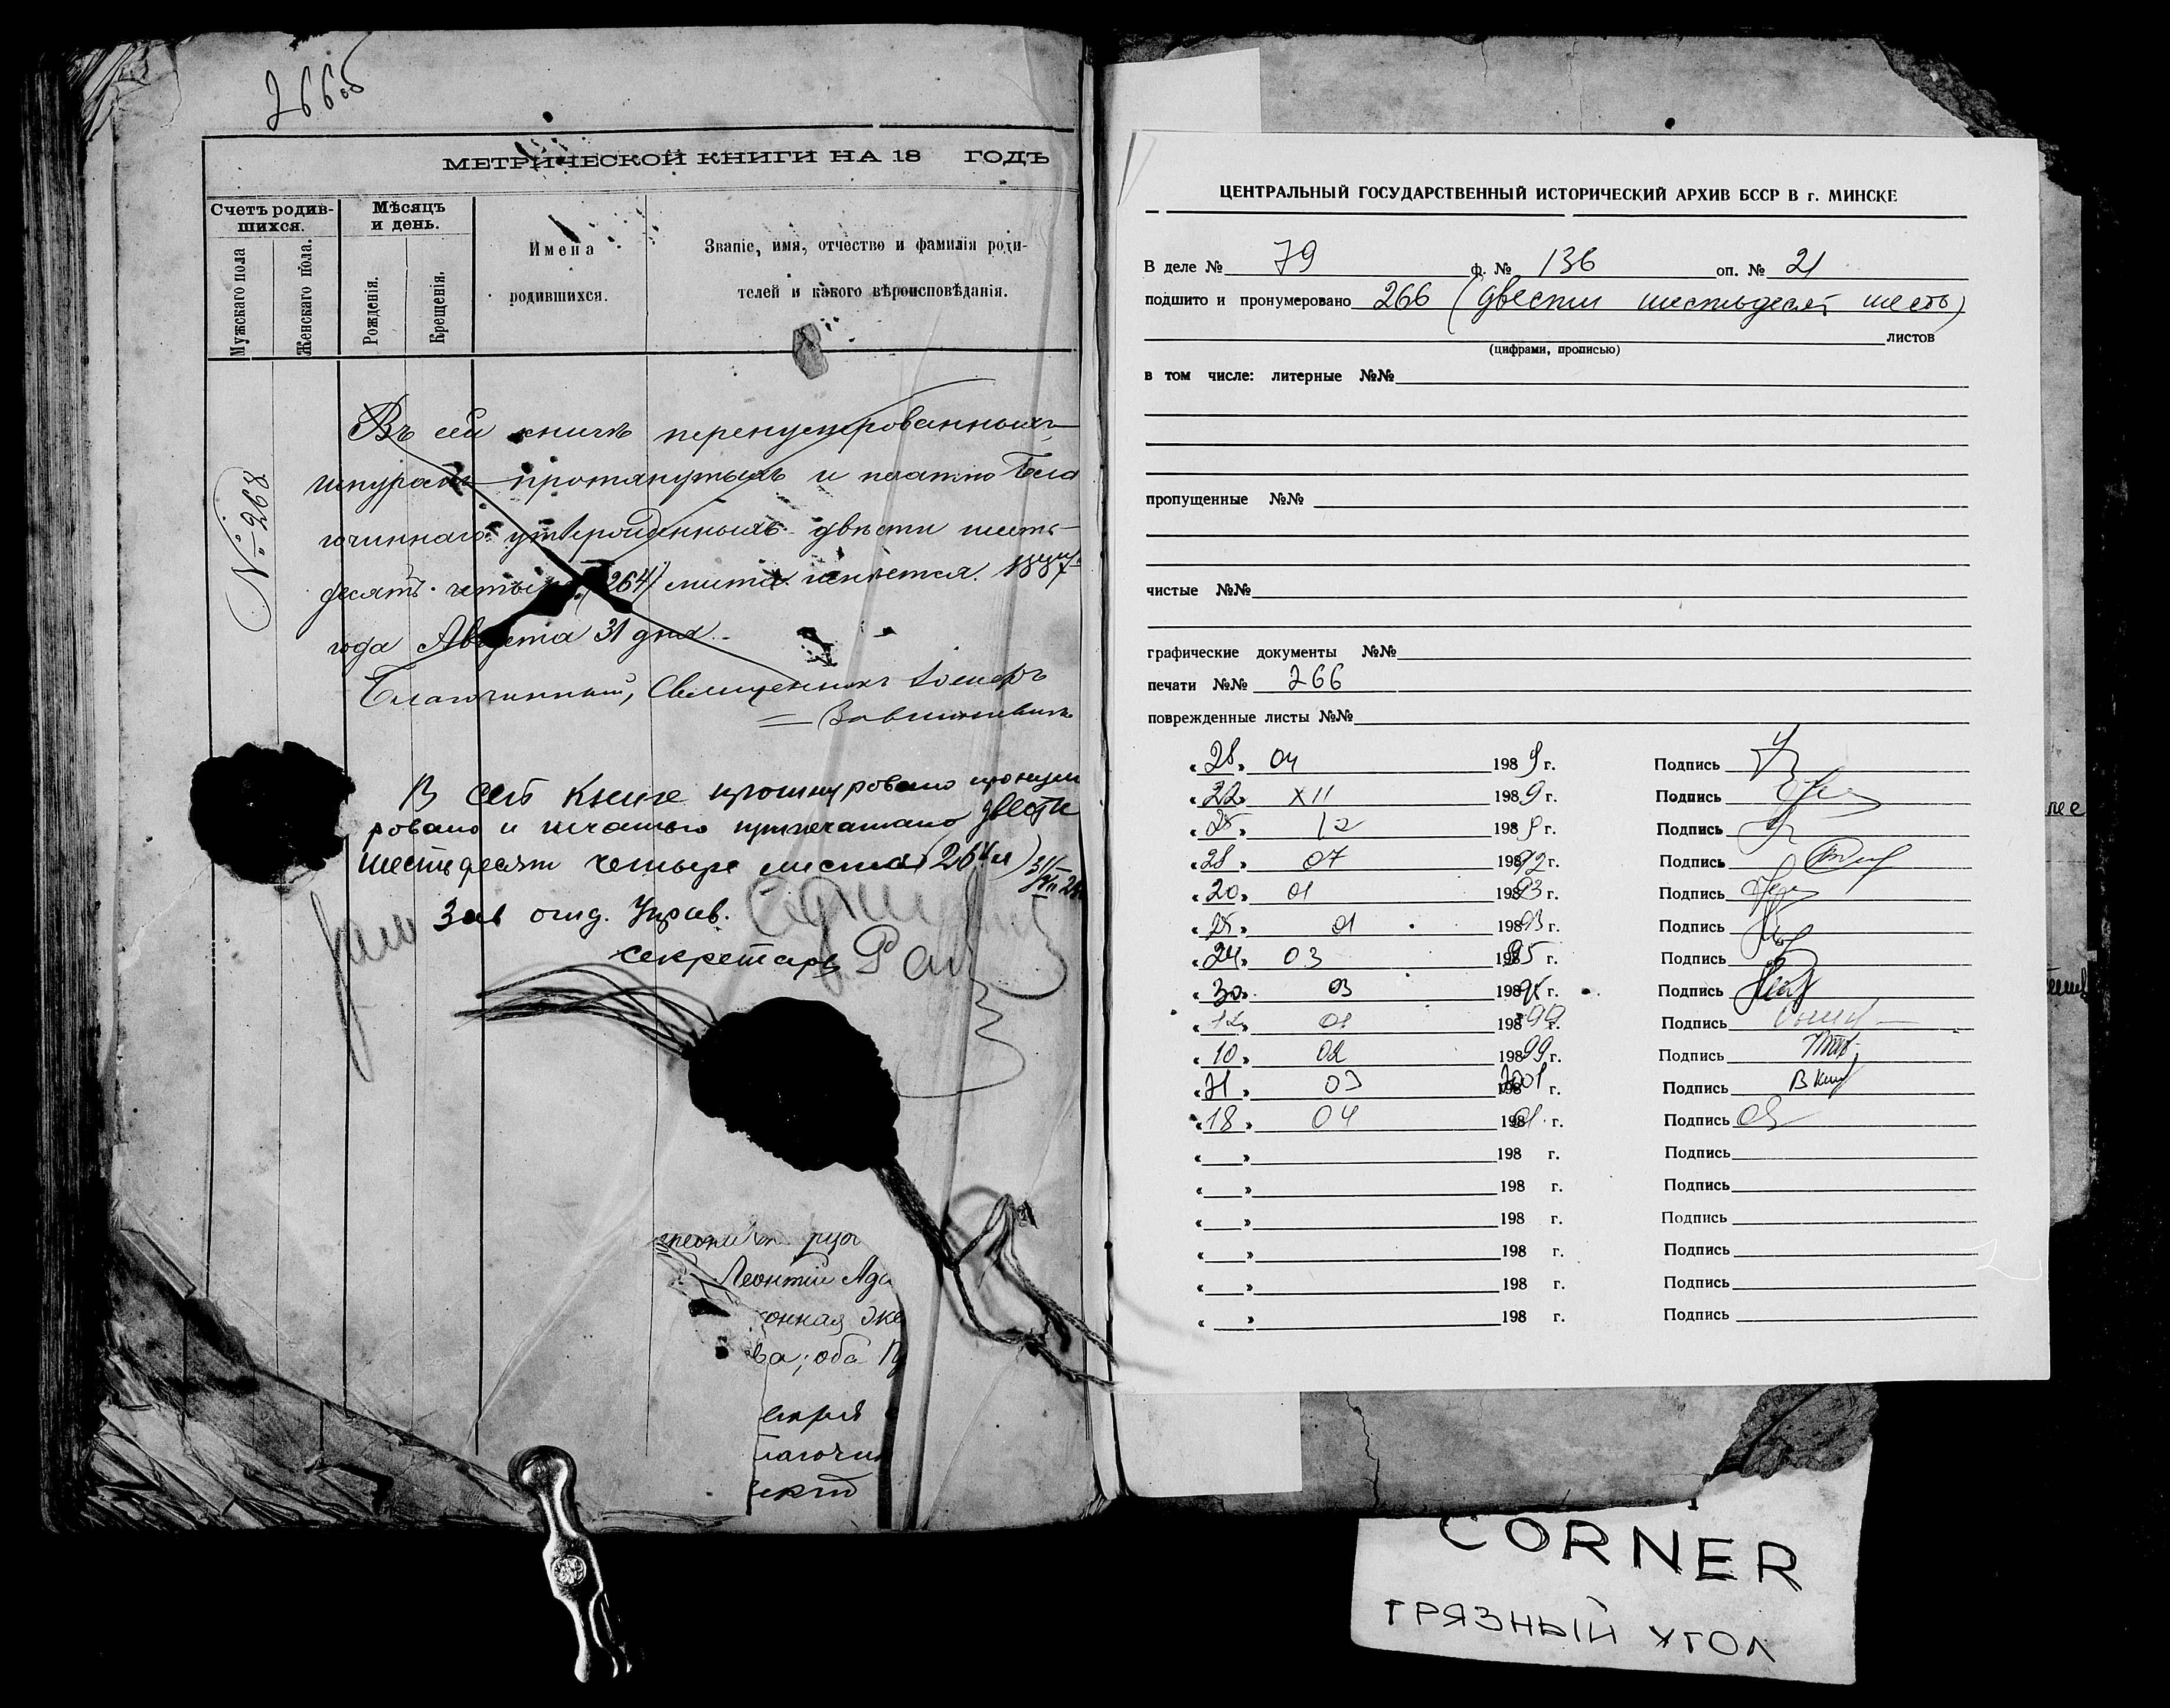 266 об
МЕТРИЧЕСКОЙ КНИГИ НА 18 ГОДЪ
Счетъ родив-
шихся.
Мужскаго пола
Женскаго пола.
Мѣсяцъ
и день.
Рожденія.
Крещенія.
Имена
родившихся.
Званіе, имя, отчество и фамилія роди-
телей и какого вѣроисповѣданія.
№ 268
Въ сей книгѣ перенумерованныхъ
шнуромъ протянутыхъ и печатью Бла
гочиннаго утвержденныхъ двѣсти шесть-
десятъ четыре (264) листа имѣется. 1887
года Августа 31 дня
Благочинный, Священникъ
В сей книге прошнуровано пронуме
ровано и печатью припечатано двести
шестьдесят четыре листа (264 л)
Зав отд. Управ.
секретарь
Леонтій Ада
ва; оба П
ЦЕНТРАЛЬНЫЙ ГОСУДАРСТВЕННЫЙ ИСТОРИЧЕСКИЙ АРХИВ БССР В г. МИНСКЕ
В деле № 79 ф. № 136 оп. № 21
подшито и пронумеровано 266 (двести шестьдесят шесть)
листов
(цифрами, прописью)
в том числе: литерные №№
пропущенные №№
чистые №№
графические документы №№
печати №№ 266
поврежденные листы №№
« 28 » 04 1989 г. Подпись
« 22 » XII 1989 г. Подпись
« 25 » 12 1989 г. Подпись
« 28 » 07 19892 г. Подпись
« 20 » 01 19893 г. Подпись
« 25 » 01 19893 г. Подпись
« 24 » 03 19895 г. Подпись
« 30 » 03 198 г. Подпись
« 12 » 01 19899 г. Подпись
« 10 » 02 19899 г. Подпись
« 21 » 03 2001 г. Подпись
« 18 » 04 19801 г. Подпись
« » 198 г. Подпись
« » 198 г. Подпись
« » 198 г. Подпись
« » 198 г. Подпись
« » 198 г. Подпись
« » 198 г. Подпись
CORNER
ГРЯЗНЫЙ УГОЛ